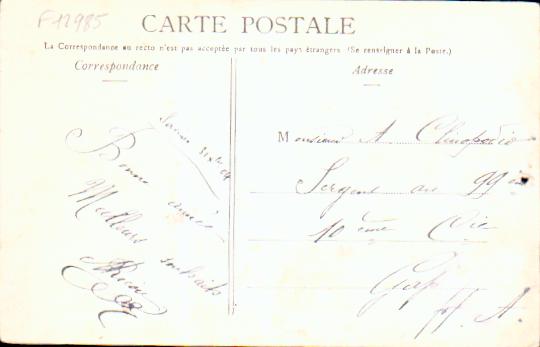 F12985
CARTE POSTALE
La Correspondance au recto n'est pas acceptée par tous les pays étrangers (Se renseigner à la Poste.)
Correspondance
Adresse
Bonne année
Meilleurs souhaits
Monsieur A.
Sergent au 99
10ème Cie
Gap
H A.